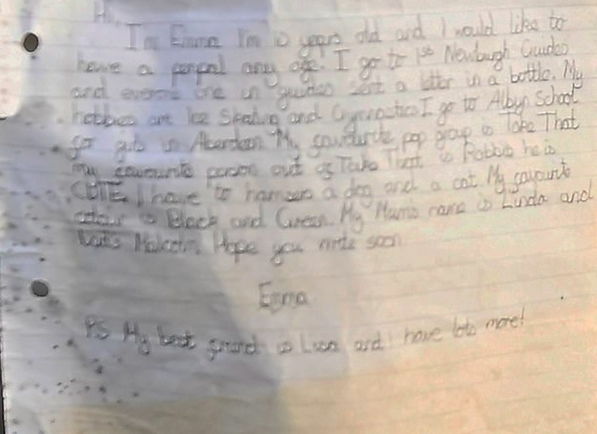 Hi,
I'm Emma I'm 10 years old and I would like to
have a penpal any age! I go to 1st Newburgh Guides
and everone one in guides sent a letter in a bottle. My
hobbies are Ice Skating and Gymnastics I go to Albyn School
for girls in Aberdeen. My favourite pop group is Take That
my favourite person out of Take That is Robbie he is
CUTE I have to hamsers a dog and a cat. My favourite
colour is Black and Green. My Mums name is Linda and
Dad's Malcolm. Hope you write soon
Emma
PS My best friend is Lisa and I have lots more!